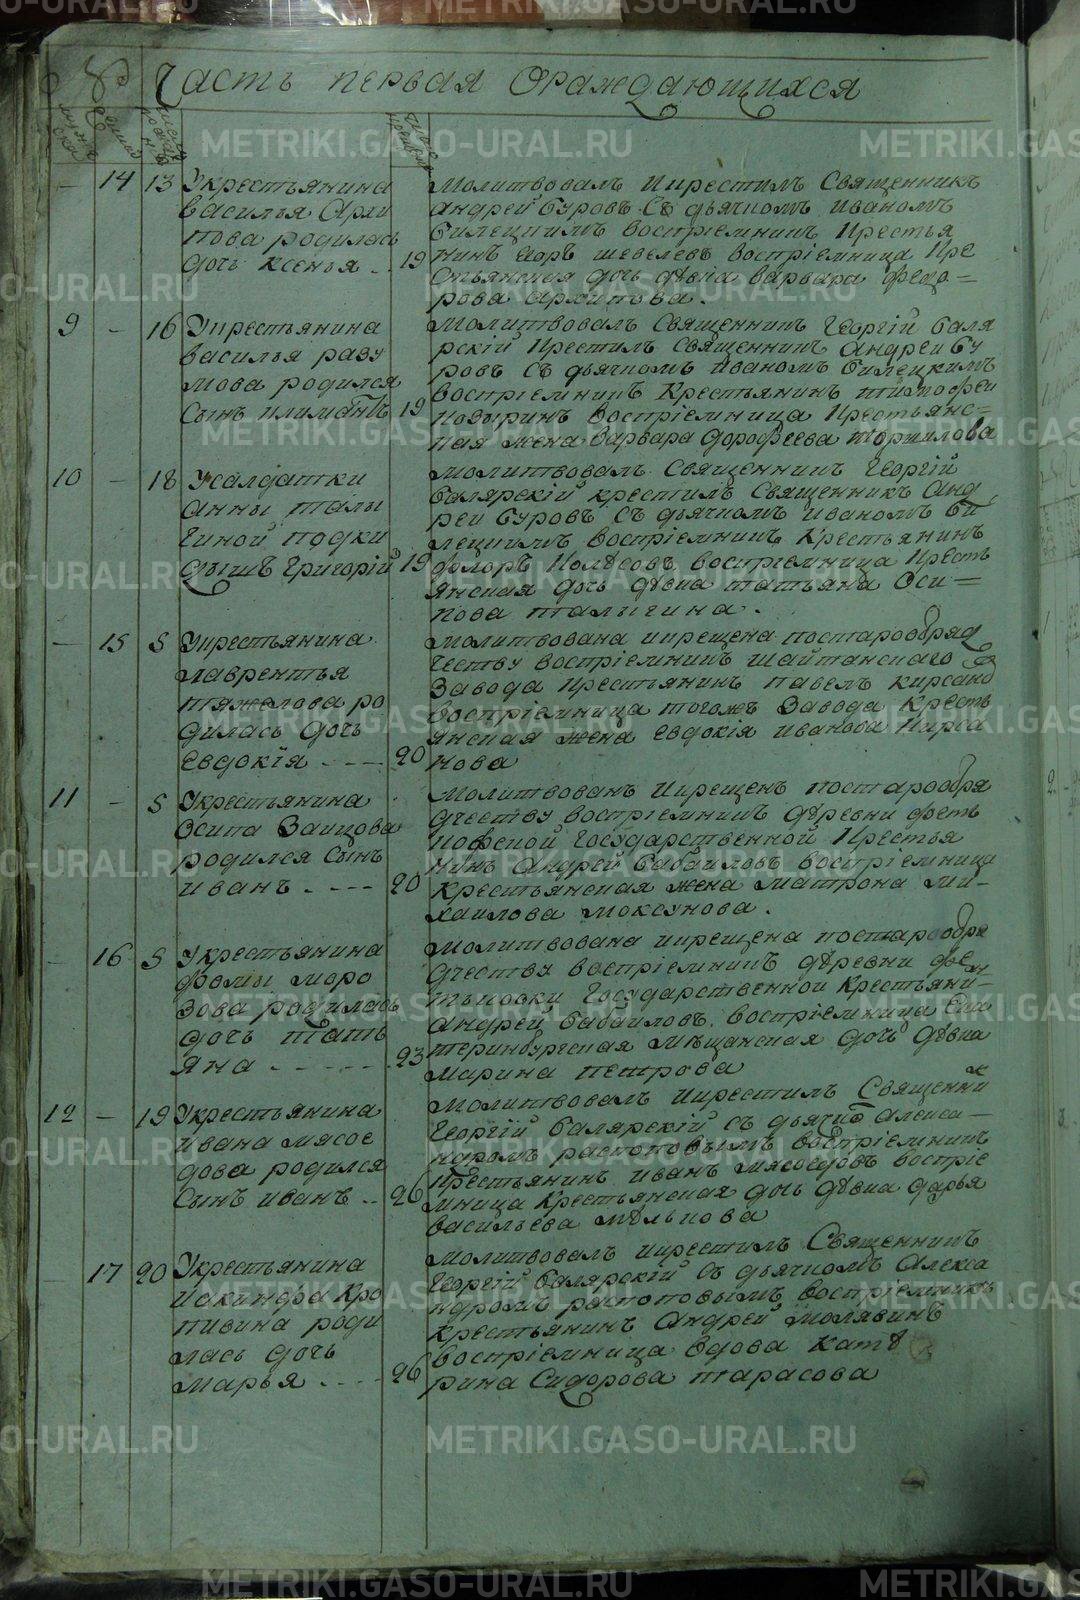 Часть первая ораждающихся
14 13 Укрестьянина
василья Архи
пова родилась
дочь ксенья .. 19
Молитвовалъ икрестилъ Священникъ
андрей буровъ съ дьячкомъ иваномъ
билецкимъ воспріемникъ крестья
нинъ егоръ шевелевъ воспріемница кре
стьянская дочь дѣвка варвара федо=
рова архипова.
9 – 16 Укрестьянина
василья разу
мова родился
сынъ климантъ 19
Молитвовалъ священникъ георгій баля
рскій крестилъ священникъ андрей бу
ровъ съ дьячкомъ иваномъ билецкимъ
воспріемникъ крестьянинъ тимофеи
воспріемница крестьянс=
кая жена варвара дорофеева
10 – 18 Усалдатки
анны талы
гиной подки
дышъ григорій 19
молитвовалъ священникъ георгій
балярскій крестилъ священникъ анд
рей буровъ съ дьячкомъ иваномъ би
лецкимъ воспріемникъ крестьянинъ
флоръ колѣсовъ воспріемница кресть
янская дочь дѣвка татьяна оси=
пова талыгина.
– 15 5 Укрестьянина
лаврентья
тяжелова ро
дилась дочь
евдокія ---- 20
молитвована икрещена постарообряд
честву воспріемникъ шайтанскаго
завода крестьянинъ павелъ кирсано
воспріемница тогожъ завода кресть
янская жена евдокія иванова кирса
нова
11 – 5 Укрестьянина
осипа заицова
родился сынъ
иванъ . ---- 20
Молитвованъ икрещенъ постарообря
дчеству воспріемникъ дѣревни
государственной крестья
нинъ андрей бабаиловъ воспріемница
крестьянская жена матрона ми-
хаилова моксунова.
– 16 5 Укрестьянина
фомы моро
зова родилась
дочь тать
яна ------ 23
молитвована икрещена постарообря
дчеству воспріемникъ дѣревни
государственной крестьяни-
андрей бабаиловъ. воспріемница ека
теринбургская мѣщанская дочь дѣвка
марина петрова
12 – 19 Укрестьянина
ивана мясое
дова родился
сынъ иванъ .. 26
Молитвовалъ икрестилъ Священни
георгій балярскій съ дьячко алекса-
ндромъ распоповымъ воспріемникъ
крестьянинъ иванъ мясоедовъ воспріе
мница крестьянская дочь дѣвка дарья
васильева мѣлькова
17 20 Укрестьянина
иакинфа кро
пивина роди
лась дочь
марья .--- 26
молитвовалъ икрестилъ Священникъ
георгій балярскій съ дьячкомъ алекса
ндромъ распоповымъ воспріемникъ
крестьянинъ андрей молявинъ
воспріемница вдова катѣ
рина сидорова тарасова
METRIKI.GASO-URAL.RU